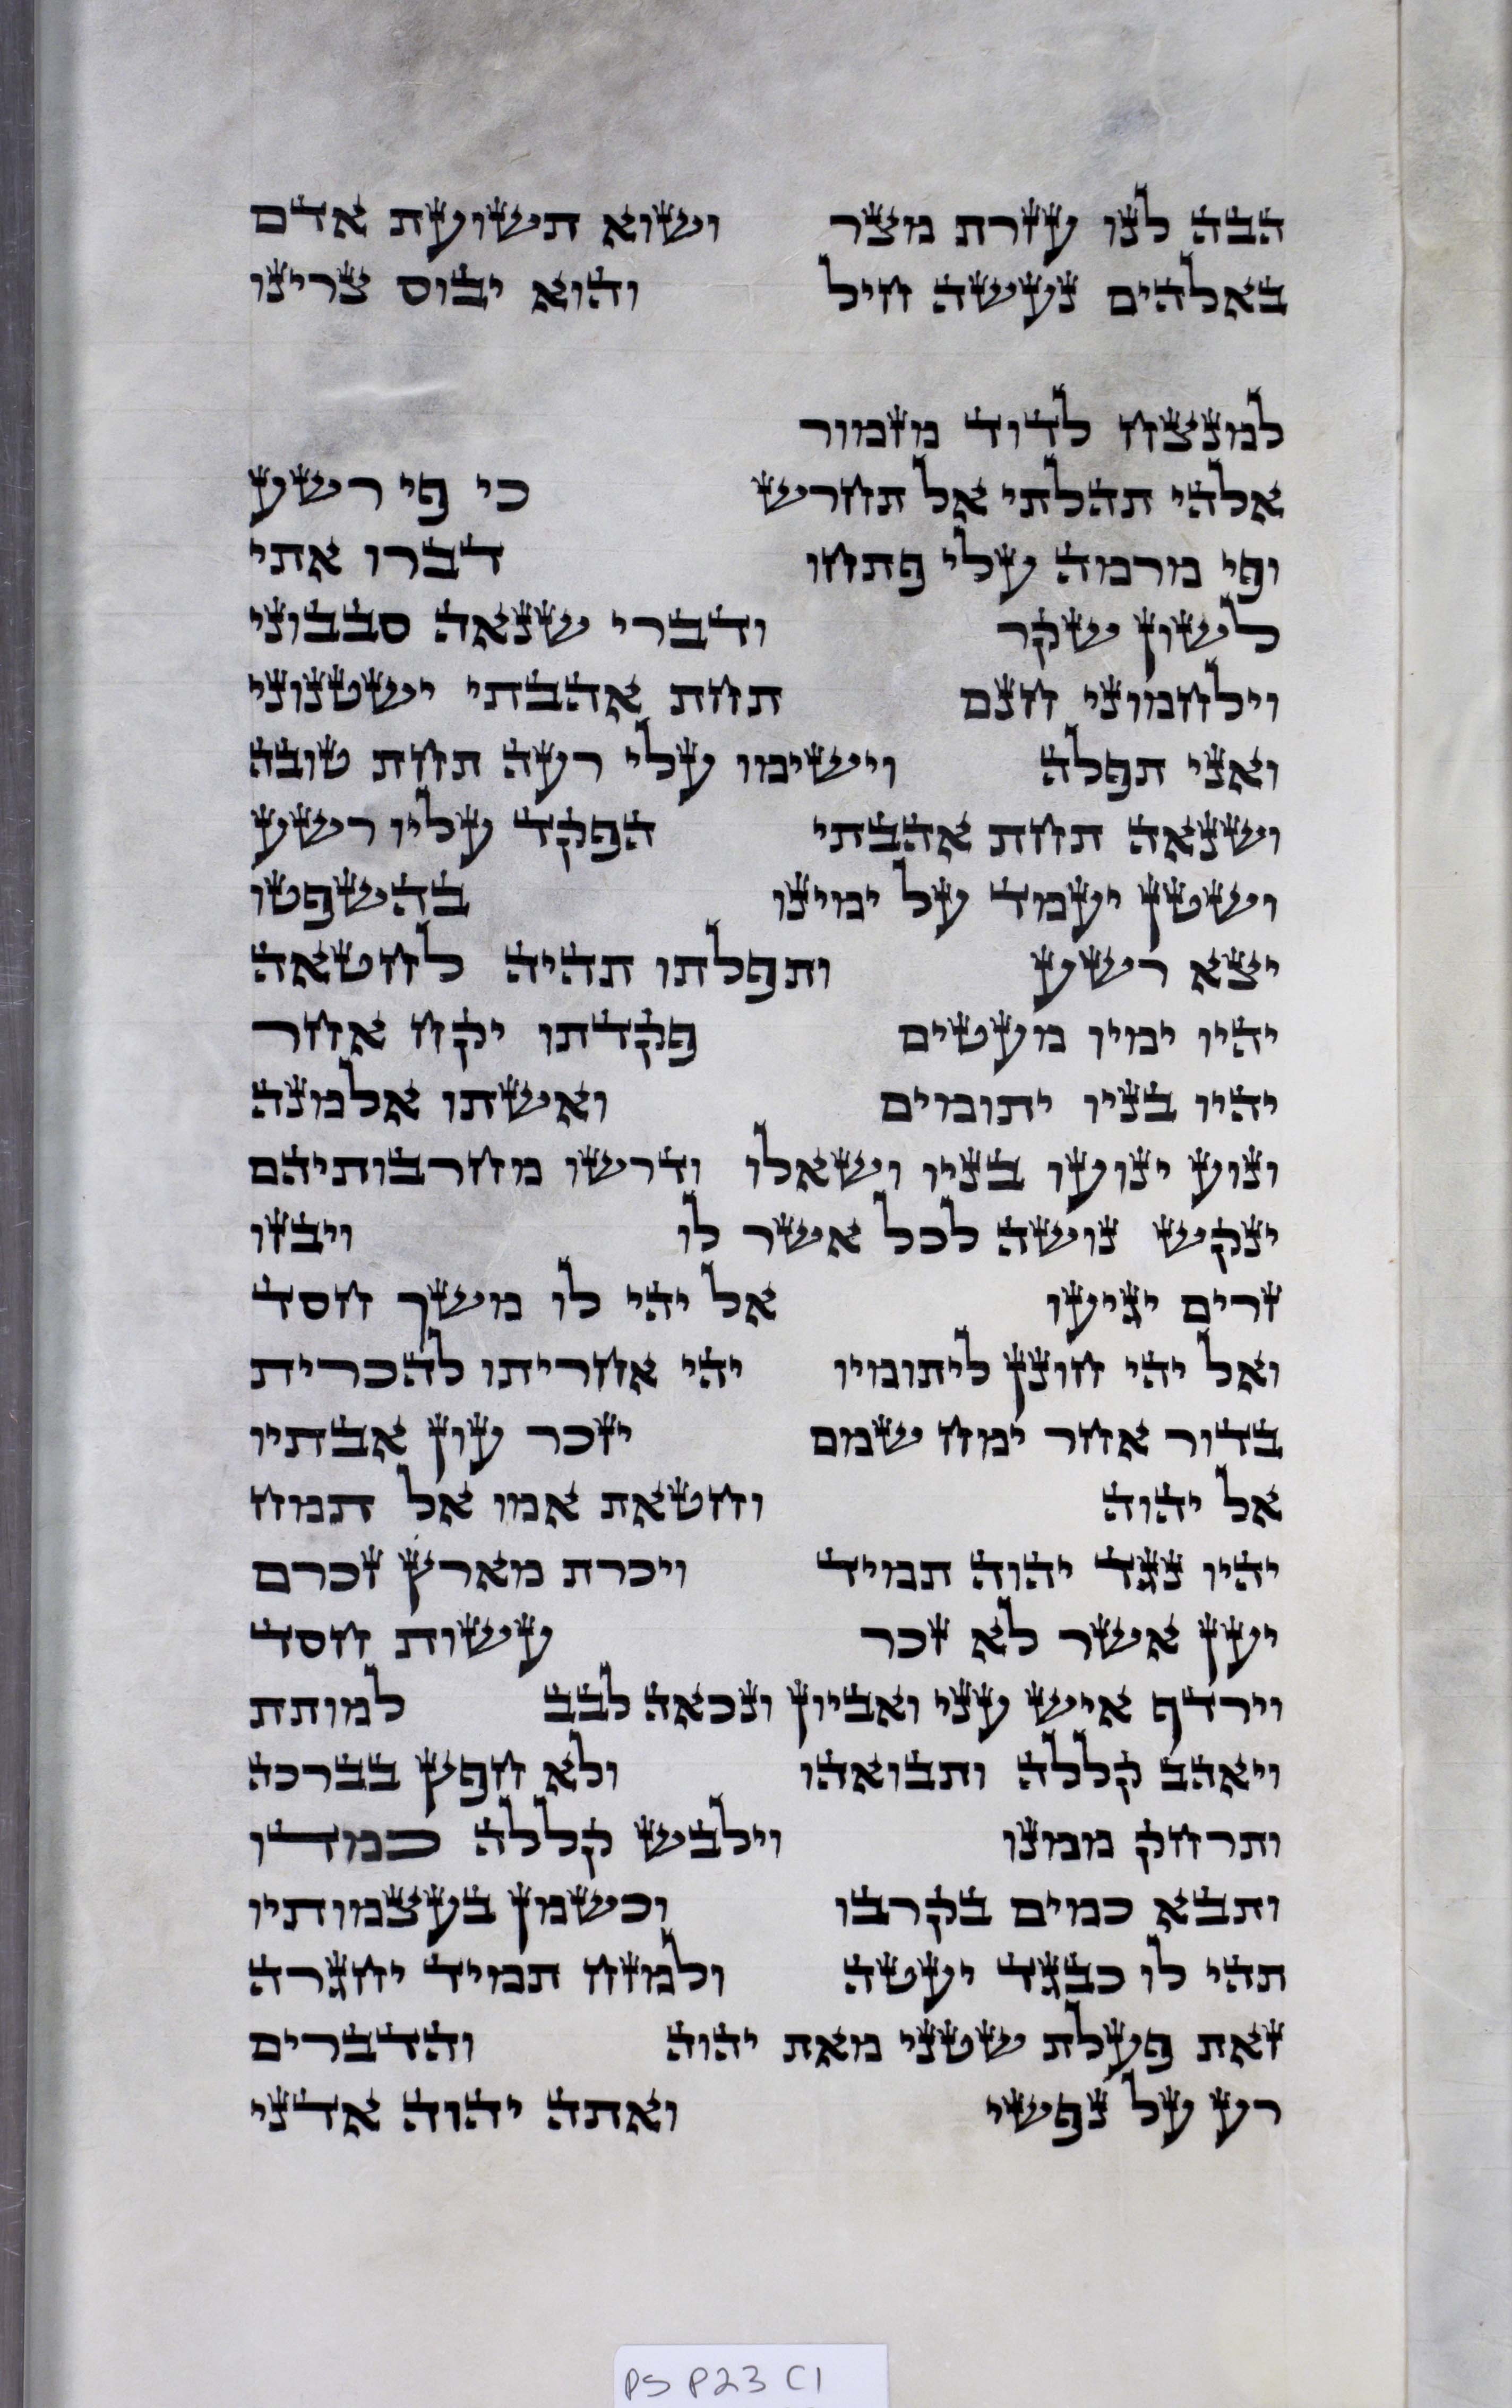 הבה לנו עזרת מצר ושוא תשועת אדם
באלהים נעשה חיל והוא יבוס צרינו
למנצח לדוד מזמור
אלהי תהלתי אל תחרש כי פי רשע
ופי מרמה עלי פתחו דברו אתי
לשון שקר ודברי שנאה סבבוני
וילחמוני חנם תחת אהבתי ישטנוני
ואני תפלה וישימו עלי רעה תחת טובה
ושנאה תחת אהבתי הפקד עליו רשע
ושטן יעמד על ימינו בהשפטו
יצא רשע ותפלתו תהיה לחטאה
יהיו ימיו מעטים פקדתו יקח אחר
יהיו בניו יתומים ואשתו אלמנה
ונוע ינועו בניו ושאלו ודרשו מחרבותיהם
ינקש נושה לכל אשר לו ויבזו
זרים יגיעו אל יהי לו משך חסד
ואל יהי חונן ליתומיו יהי אחריתו להכרית
בדור אחר ימח שמם יזכר עון אבתיו
אל יהוה וחטאת אמו אל תמח
יהיו נגד יהוה תמיד ויכרת מארץ זכרם
יען אשר לא זכר עשות חסד
וירדף איש עני ואביון ונכאה לבב למותת
ויאהב קללה ותבואהו ולא חפץ בברכה
ותרחק ממנו וילבש קללה כמדו
ותבא כמים בקרבו וכשמן בעצמותיו
תהי לו כבגד יעטה ולמזח תמיד יחגרה
זאת פעלת שטני מאת יהוה והדברים
רע על נפשי ואתה יהוה אדני
PS P23 C1